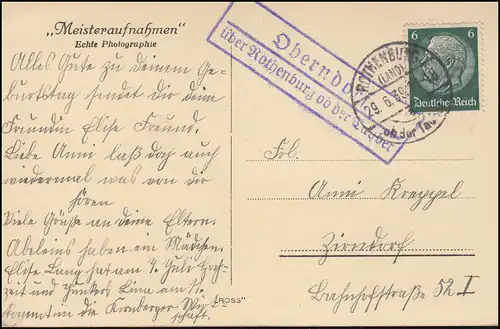 „Meisteraufnahmen"
Echte Photographie
Alles Gute zu deinem Ge-
burtstag sendet dir deine
Freundin Elise Freund.
Liebe Anni laß doch auch
wiedermal was von dir
hören
Viele Grüße an deine Eltern.
Abeleins haben ein Mädchen.
Elise Lang hat am 7. Juli Hoch-
zeit und Lina am
in die Kirnberger Wirt-
schaft.
"ROSS"
Oberndorf
über Rothenburg ob der Tauber
ROTHENBURG
(LAND)
29.6.39
ob der Tau
6 6
Deutsches Reich
Frl.
Anni Kreppel
Zirndorf
Bahnhofstraße 52 I